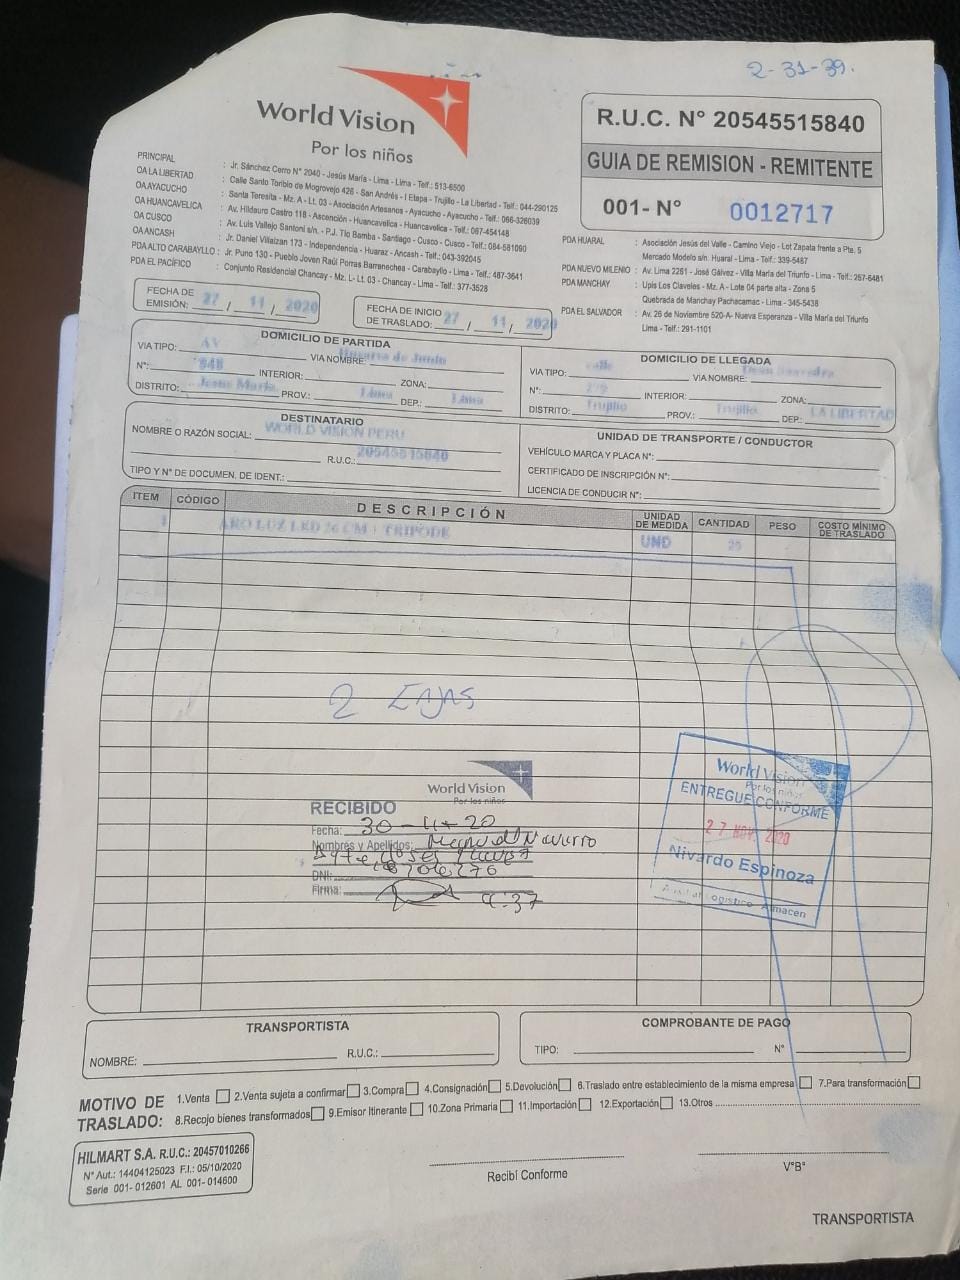 2-31-39.
World Vision
Por los niños
R.U.C. N° 20545515840
GUIA DE REMISION - REMITENTE
001- N° 0012717
PRINCIPAL : Jr. Sánchez Cerro N° 2040 - Jesús María - Lima - Lima - Telf.: 513-6500
OA LA LIBERTAD : Calle Santo Toribio de Mogrovejo 426 - San Andrés - I Etapa - Trujillo - La Libertad - Telf: 044-290125
OA AYACUCHO : Santa Teresita - Mz. A - Lt. 03 - Asociación Artesanos - Ayacucho - Ayacucho - Telf.: 066-326039
OA HUANCAVELICA : Av. Hildauro Castro 118 - Ascención - Huancavelica - Huancavelica - Telf.: 067-454148
OA CUSCO : Av. Luis Vallejo Santoni s/n. - P.J. Tío Bamba - Santiago - Cusco - Cusco - Telf.: 084-581090
OA ANCASH : Jr. Daniel Villaizan 173 - Independencia - Huaraz - Ancash - Telf.: 043-392045
PDA ALTO CARABAYLLO : Jr. Puno 130 - Pueblo Joven Raúl Porras Barrenechea - Carabayllo - Lima - Telf.: 487-3641
PDA EL PACÍFICO : Conjunto Residencial Chancay - Mz. L- Lt. 03 - Chancay - Lima - Telf.: 377-3528
PDA HUARAL : Asociación Jesús del Valle - Camino Viejo - Lot Zapata frente a Pte. 5
Mercado Modelo s/n. Huaral - Lima - Telf.: 339-5487
PDA NUEVO MILENIO : Av. Lima 2261 - José Gálvez - Villa María del Triunfo - Lima - Telf.: 257-6481
PDA MANCHAY : Upis Los Claveles - Mz. A - Lote 04 parte alta - Zona 5
Quebrada de Manchay Pachacamac - Lima - 345-5438
PDA EL SALVADOR : Av. 26 de Noviembre 520-A- Nueva Esperanza - Villa María del Triunfo
Lima - Telf.: 291-1101
FECHA DE EMISIÓN: 27 / 11 / 2020
FECHA DE INICIO DE TRASLADO: 27 / 11 / 2020
DOMICILIO DE PARTIDA
VIA TIPO: AV VIA NOMBRE: de Junio
N°: 848 INTERIOR: ZONA:
DISTRITO: Jesus Maria PROV.: Lima DEP.: Lima
DOMICILIO DE LLEGADA
VIA TIPO: calle VIA NOMBRE: Dean Saavedra
N°: INTERIOR: ZONA:
DISTRITO: Trujillo PROV.: Trujillo DEP.: LA LIBERTAD
DESTINATARIO
NOMBRE O RAZÓN SOCIAL: WORLD VISION PERU
R.U.C.: 20545515840
TIPO Y N° DE DOCUMEN. DE IDENT.:
UNIDAD DE TRANSPORTE / CONDUCTOR
VEHÍCULO MARCA Y PLACA N°:
CERTIFICADO DE INSCRIPCIÓN N°:
LICENCIA DE CONDUCIR N°:
ITEM CÓDIGO DESCRIPCIÓN UNIDAD DE MEDIDA CANTIDAD PESO COSTO MÍNIMO DE TRASLADO
1 ARO LUZ LED 26 CM + TRIPODE UND 25
2 CAJAS
World Vision
Por los niños
RECIBIDO
Fecha: 30-11-20
Nombres y Apellidos: Navarro
DNI:
Firma: 9:37
World Vision
Por los niños
ENTREGUE CONFORME
27 NOV. 2020
Nivardo Espinoza
Auxiliar Logistico Almacen
TRANSPORTISTA
NOMBRE: R.U.C.:
COMPROBANTE DE PAGO
TIPO: N°
MOTIVO DE TRASLADO:
1.Venta 2.Venta sujeta a confirmar 3.Compra 4.Consignación 5.Devolución 6.Traslado entre establecimiento de la misma empresa 7.Para transformación
8.Recojo bienes transformados 9.Emisor Itinerante 10.Zona Primaria 11.Importación 12.Exportación 13.Otros
HILMART S.A. R.U.C.: 20457010266
N° Aut.: 14404125023 F.I.: 05/10/2020
Serie 001- 012601 AL 001- 014600
Recibí Conforme
V°B°
TRANSPORTISTA